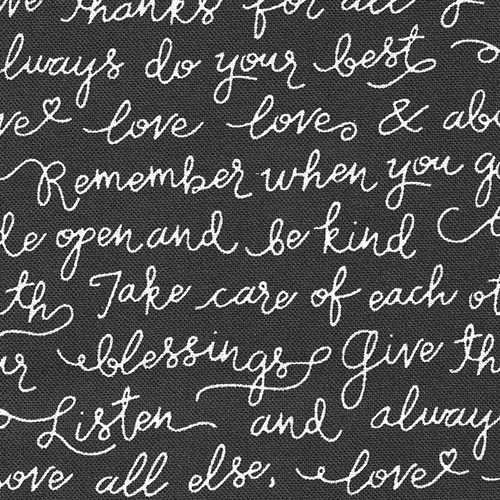 ve thanks for all y
lways do your best
ve love love & abo
Remember when you go
le open and be kind
th Take care of each ot
ur blessings Give th
Listen and always
ove all else, love